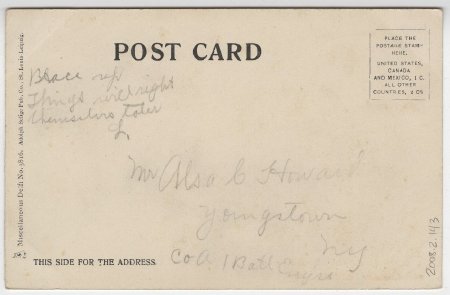 POST CARD
PLACE THE
POSTAGE STAMP
HERE.
UNITED STATES,
CANADA
AND MEXICO, 1 C.
ALL OTHER
COUNTRIES, 2 CTS
Brace up
Things will right
themselves later
L.
Mr Alsa C Howard
Yongstown
Co A 1 Batt Engrs
NY
Miscellaneous Delft No. 3816. Adolph Selige Pub. Co., St. Louis-Leipzig.
THIS SIDE FOR THE ADDRESS.
2008.2.143